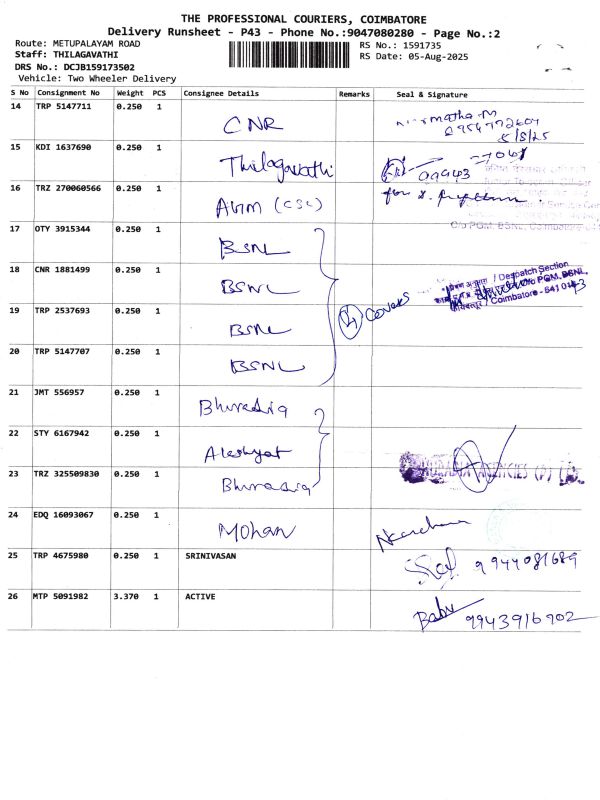 THE PROFESSIONAL COURIERS, COIMBATORE
Delivery Runsheet - P43 - Phone No.:9047080280 - Page No.:2
Route: METUPALAYAM ROAD RS No.: 1591735
Staff: THILAGAVATHI RS Date: 05-Aug-2025
DRS No.: DCJB159173502
Vehicle: Two Wheeler Delivery
S No Consignment No Weight PCS Consignee Details Remarks Seal & Signature
14 TRP 5147711 0.250 1 CNR
5/8/25
15 KDI 1637690 0.250 1 Thilagavathi 99443 27061
16 TRZ 270060566 0.250 1 (CSC) for
C/o PGM, BSNL, Coimbatore
17 OTY 3915344 0.250 1 BSNL
18 CNR 1881499 0.250 1 BSNL (4) Covers
/ Despatch Section
C/o PGM, BSNL,
Coimbatore - 641 043
19 TRP 2537693 0.250 1 BSNL
20 TRP 5147707 0.250 1 BSNL
21 JMT 556957 0.250 1
22 STY 6167942 0.250 1
23 TRZ 325509830 0.250 1 AGENCIES (P)
24 EDQ 16093067 0.250 1 Mohan
25 TRP 4675980 0.250 1 SRINIVASAN 9944081689
26 MTP 5091982 3.370 1 ACTIVE Babu 9943916902